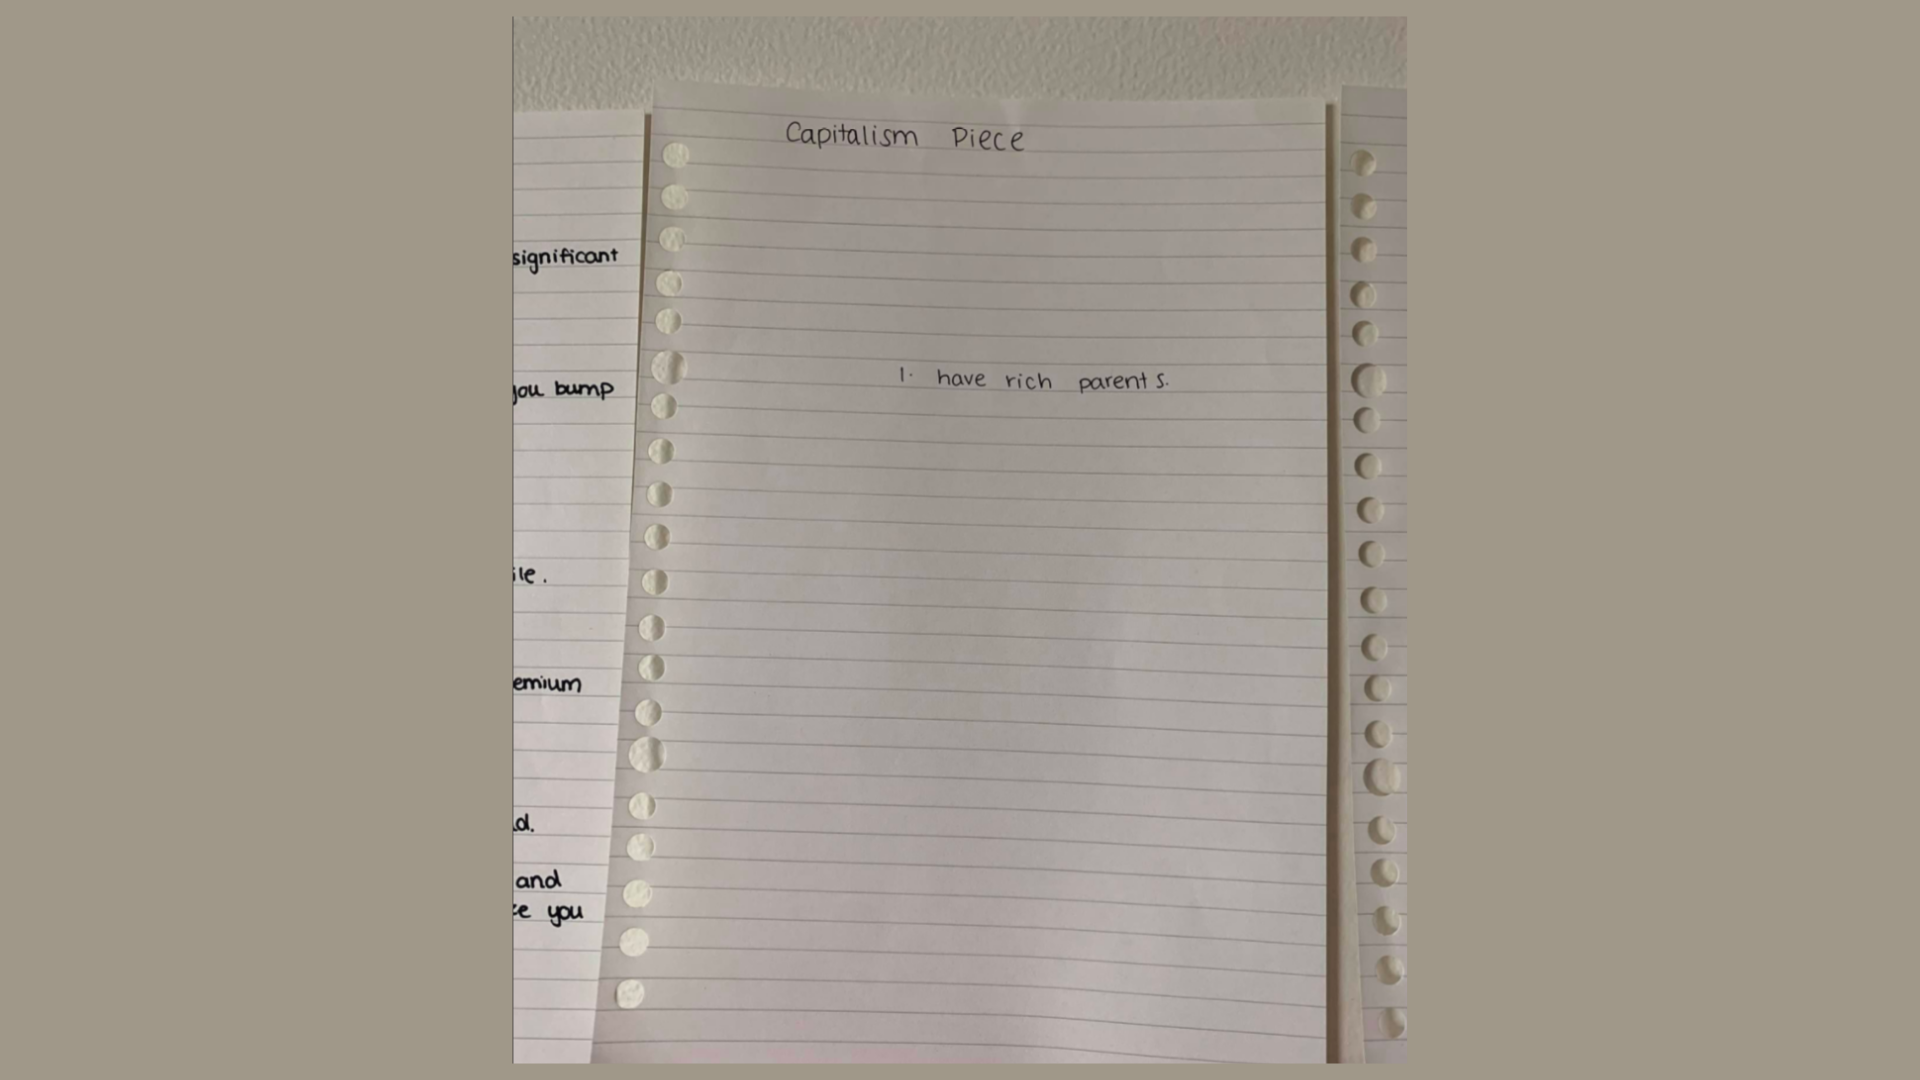 significant
you bump
ile.
emium
d.
and
you
Capitalism Piece
1. have rich parents.